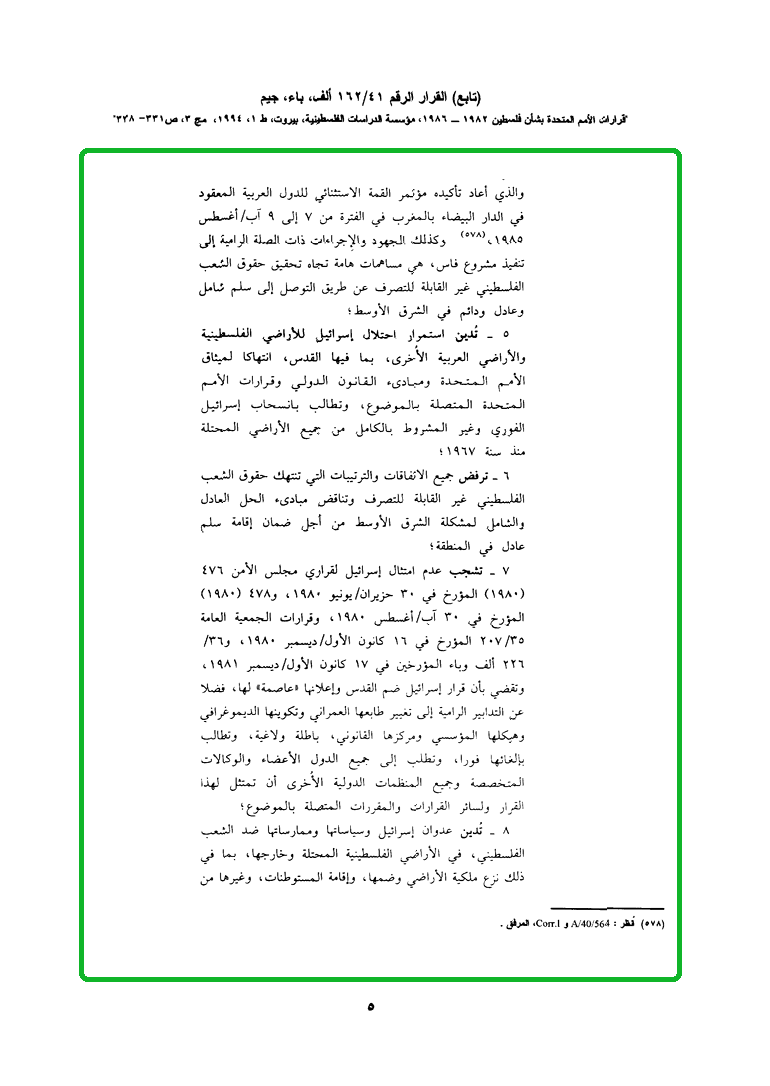 (تابع) القرار الرقم ١٦٢/٤١ ألف، باء، جيم
"قرارات الأمم المتحدة بشأن فلسطين ١٩٨٢ ــ ١٩٨٦، مؤسسة الدراسات الفلسطينية، بيروت، ط ١، ١٩٩٤، مج ٣، ص٣٣١- ٣٣٨"
والذي أعاد تأكيده مؤتمر القمة الاستثنائي للدول العربية المعقود
في الدار البيضاء بالمغرب في الفترة من ٧ إلى ٩ آب/أغسطس
١٩٨٥،(٥٧٨) وكذلك الجهود والإجراءات ذات الصلة الرامية إلى
تنفيذ مشروع فاس، هي مساهمات هامة تجاه تحقيق حقوق الشعب
الفلسطيني غير القابلة للتصرف عن طريق التوصل إلى سلم شامل
وعادل ودائم في الشرق الأوسط؛
٥ ـ تُدين استمرار احتلال إسرائيل للأراضي الفلسطينية
والأراضي العربية الأُخرى، بما فيها القدس، انتهاكا لميثاق
الأمم المتحدة ومبادىء القانون الدولي وقرارات الأمم
المتحدة المتصلة بالموضوع، وتطالب بانسحاب إسرائيل
الفوري وغير المشروط بالكامل من جميع الأراضي المحتلة
منذ سنة ١٩٦٧؛
٦ ـ ترفض جميع الاتفاقات والترتيبات التي تنتهك حقوق الشعب
الفلسطيني غير القابلة للتصرف وتناقض مبادىء الحل العادل
والشامل لمشكلة الشرق الأوسط من أجل ضمان إقامة سلم
عادل في المنطقة؛
٧ ـ تشجب عدم امتثال إسرائيل لقراري مجلس الأمن ٤٧٦
(١٩٨٠) المؤرخ في ٣٠ حزيران/يونيو ١٩٨٠، و٤٧٨ (١٩٨٠)
المؤرخ في ٣٠ آب/أغسطس ١٩٨٠، وقرارات الجمعية العامة
٢٠٧/٣٥ المؤرخ في ١٦ كانون الأول/ديسمبر ١٩٨٠، و٣٦/
٢٢٦ ألف وباء المؤرخين في ١٧ كانون الأول/ديسمبر ١٩٨١،
وتقضي بأن قرار إسرائيل ضم القدس وإعلانها «عاصمة» لها، فضلا
عن التدابير الرامية إلى تغيير طابعها العمراني وتكوينها الديموغرافي
وهيكلها المؤسسي ومركزها القانوني، باطلة ولاغية، وتطالب
بإلغائها فورا، وتطلب إلى جميع الدول الأعضاء والوكالات
المتخصصة وجميع المنظمات الدولية الأُخرى أن تمتثل لهذا
القرار ولسائر القرارات والمقررات المتصلة بالموضوع؛
٨ ـ تُدين عدوان إسرائيل وسياساتها وممارساتها ضد الشعب
الفلسطيني، في الأراضي الفلسطينية المحتلة وخارجها، بما في
ذلك نزع ملكية الأراضي وضمها، وإقامة المستوطنات، وغيرها من
(٥٧٨) أُنظر : A/40/564 و Corr.1، المرفق .
٥